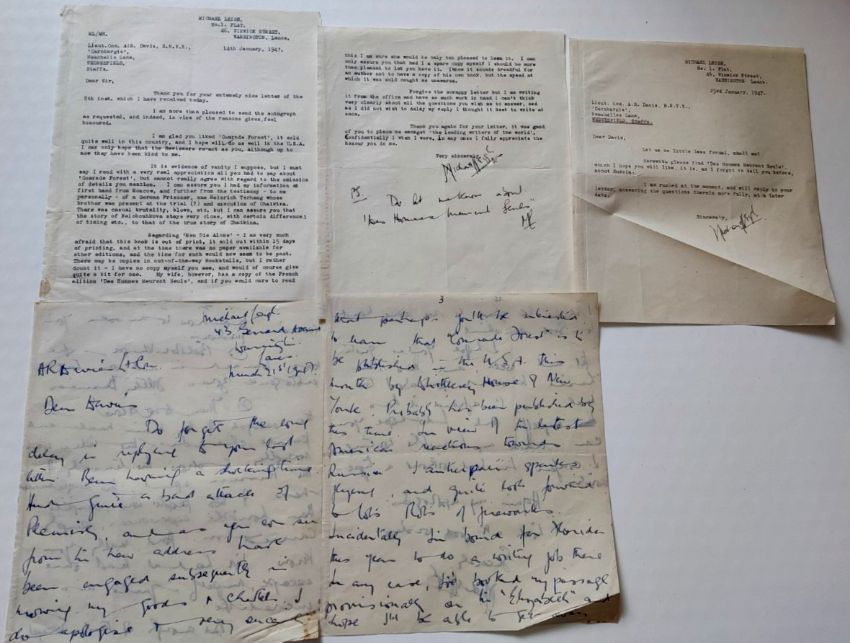 MICHAEL LEIGH,
No.1. FLAT,
46. VIRWICK STREET,
WARRINGTON. Lancs.
14th January, 1947.
Lieut.Com. A.R. Davis, R.N.V.R.,
Staffs.
Dear Sir,
Thank you for your extremely nice letter of the
8th inst, which I have received today.
I am more than pleased to send the autograph
as requested, and indeed, in view of the remarks given, feel
honoured.
I am glad you liked 'Comrade Forest', it sold
quite well in this country, and I hope will do as well in the U.S.A.
I can only hope that the Reviewers revert as you, although up to
now they have been kind to me.
It is evidence of vanity I suppose, but I must
say I read with a very real appreciation all you had to say about
'Comrade Forest', but cannot really agree with regard to the omission
of details you mention. I can assure you I had my information at
first hand from Moscow, and further from the testimony - to me
personally - of a German Prisoner, one Heinrich
brother was present at the trial (?) and execution of
There was casual brutality, blows, etc. It may interest you that
the story of
of timing etc., to that of the true story of
Regarding 'Men Die Alone' - I am very much
afraid that this book is out of print, it sold out within 15 days
of printing, and at the time there was no paper available for
other editions, and the time for such would now seem to be past.
There may be copies in out-of-the-way Bookstalls, but I rather
doubt it - I have no copy myself you see, and would of course give
quite a bit for one. My wife, however, has a copy of the French
edition 'Des Hommes Meurent Seuls', and if you would care to read
this I am sure she would be only too pleased to loan it. I can
only assure you that had I a spare copy myself I should be more
than pleased to let you have it. Indeed it sounds dreadful for
an author not to have a copy of his own book, but the speed at
which it was sold caught us unawares.
Forgive the scrappy letter but I am writing
it from the office and have so much work in hand I can't think
very clearly about all the questions you wish me to answer, and
as I did not wish to delay my reply I thought it best to write at
once.
Thank you again for your letter, it was good
of you to place me amongst 'the leading writers of the world'.
Confidentially I wish I were, in any case I fully appreciate the
honour you do me.
Very sincerely,
Michael Leigh
PS
Do let me know about
"Des Hommes Meurent Seuls"
ML
MICHAEL LEIGH,
No. 1. Flat,
46. Virwick Street,
WARRINGTON. Lancs.
23rd January, 1947.
Lieut. Com. A.R. Davis, R.N.V.R.,
Dear Davis,
Let us be little less formal, shall we?
Herewith please find 'Des Hommes Meurent Seuls',
which I hope you will like,
I am rushed at the moment, and will reply to your
letter, answering the questions therein more fully, at a later
date.
Sincerely,
Michael Leigh
Michael Leigh
Warrington
Lancs.
March 21st 1947.
Dear Davis,
Do forget the long
delay in replying to your last
letter. Been having a shocking time
quite a bad attack of
Pleurisy, and as you can see
from the new address have
been engaged subsequently in
moving my goods & chattels. I
do apologise very sincerely
3
You'll be interested
to learn that Comrade Forest is to
be published in the U.S.A. this
month by Whittlesey House of New
York. Probably has been published by
this time. In view of the latest
American reactions towards
Russia I anticipate
and quite look forward
to lots of fireworks.
Incidentally I'm bound for Florida
this year to do a writing job there
In any case, I've booked my passage
provisionally on the "Elizabeth" and
hope I'll be able to